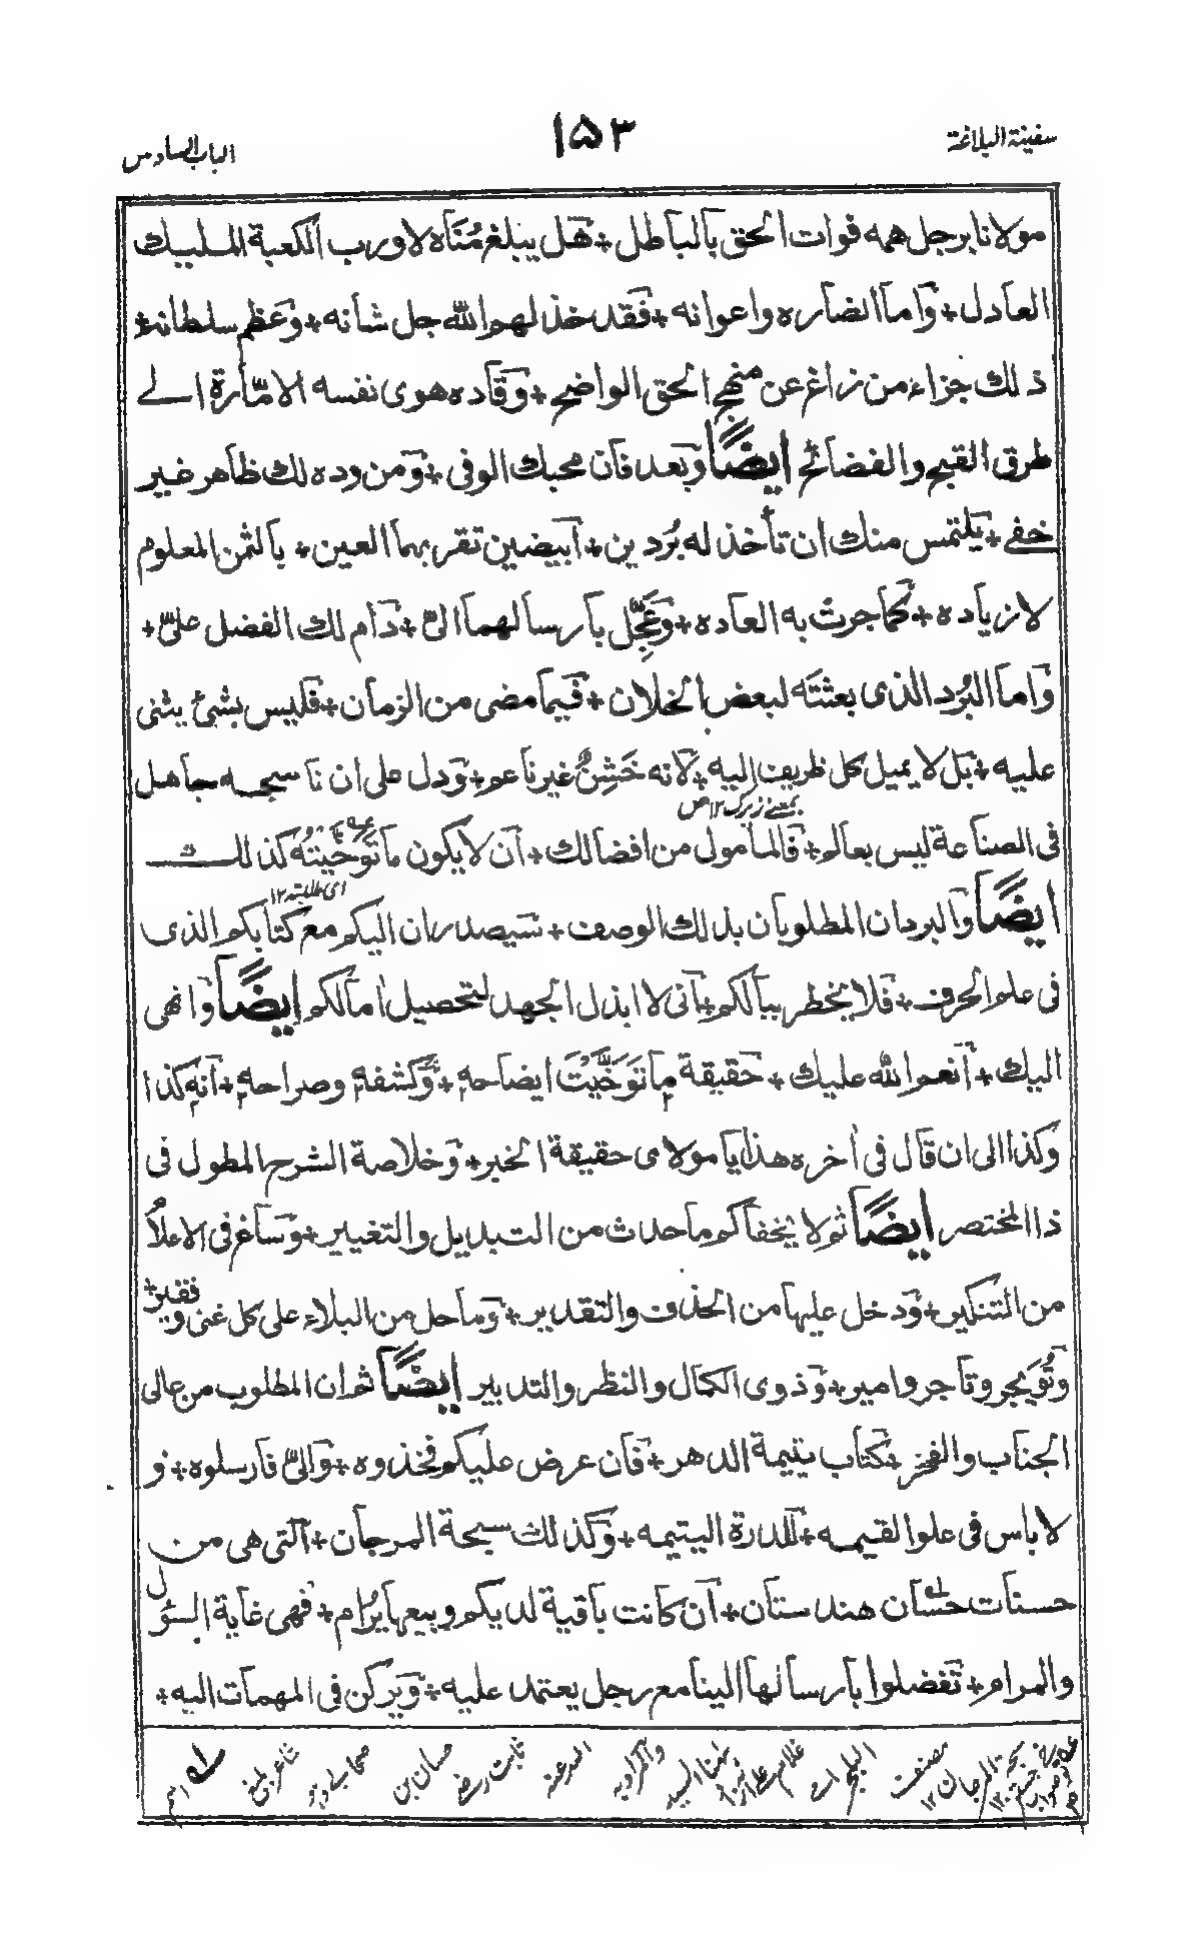 سفينة البلاغة
۱۵۳
الباب السادس
مولانا برجل همه فوات الحق بالباطل + هل يبلغ مُنَاه لا ورب الكعبة المليك
العادل + واما الضاره واعوانه + فقد خذلهم الله جل شانه + وعظم سلطانه +
ذلك جزاء من زاغ عن منهج الحق الواضح + وقاده هوى نفسه الامّارة الے
طرق القبح والفضائح ايضًا وبعد فان محبك الوفى + ومن وده لك ظاهر غير
خفے + يلتمس منك ان تأخذ له بُردين + ابيضين تقر بهما العين + بالثمن المعلوم
لا زياده + كما جرت به العاده + وعَجِّل بارسالهما الىّ + دام لك الفضل علىّ +
واما البُرد الذى بعثتَه لبعض الخلان + فيما مضى من الزمان + فليس بشئ يثنى
عليه + بل لا يميل كل ظريف اليه + لانه خَشِنٌ غير ناعم + ودل على ان ناسجه جاهل
بمعنے زيرك ۱۲ ص
فى الصناعة ليس بعالم + فالمأمول من افضالك + ان لا يكون ما تَوَخَّيتُه كذلك
اى طلبته ۱۲
ايضًا والبردان المطلوبان بذلك الوصف + سيصدران اليكم مع كتابكم الذى
فى علم الحرف + فلا يخطر ببالكم + انى لا ابذل الجهد لتحصيل امالكم ايضًا وانهى
اليك + انعم الله عليك + حقيقة ما تَوَخَّيْتَ ايضاحه + وكشفه وصراحه + انه كذا
وكذا الى ان قال فى اخره هذا يا مولاى حقيقة الخبر + وخلاصة الشرح المطول فى
ذا المختصر ايضًا ثم لا يخفاكم ما حدث من التبديل والتغيير + وساغ فى الاعلام
من التنكير + ودخل عليها من الحذف والتقدير + وما حل من البلاء على كل غنى وفقير +
وتُوَيجر وتاجر وامير + وذوى الكمال والنظر والتدبير ايضًا ثم ان المطلوب من عالى
الجناب والفخر + كتاب يتيمة الدهر + فان عرض عليكم فخذوه + والىّ فارسلوه + و
لا باس فى علو القيمه + للدرة اليتيمه + وكذلك سبحة المرجان + التى هى من
حسنات حسّان هندستان + ان كانت باقية لديكم وبيعها يُرام + فهى غاية السؤل
والمرام + تفضلوا بارسالها الينا مع رجل يعتمد عليه + ويركن فى المهمات اليه +
سبحة المرجان ۱۲
مصنف
غلام على آزاد
ثابت رضے
حسان بن